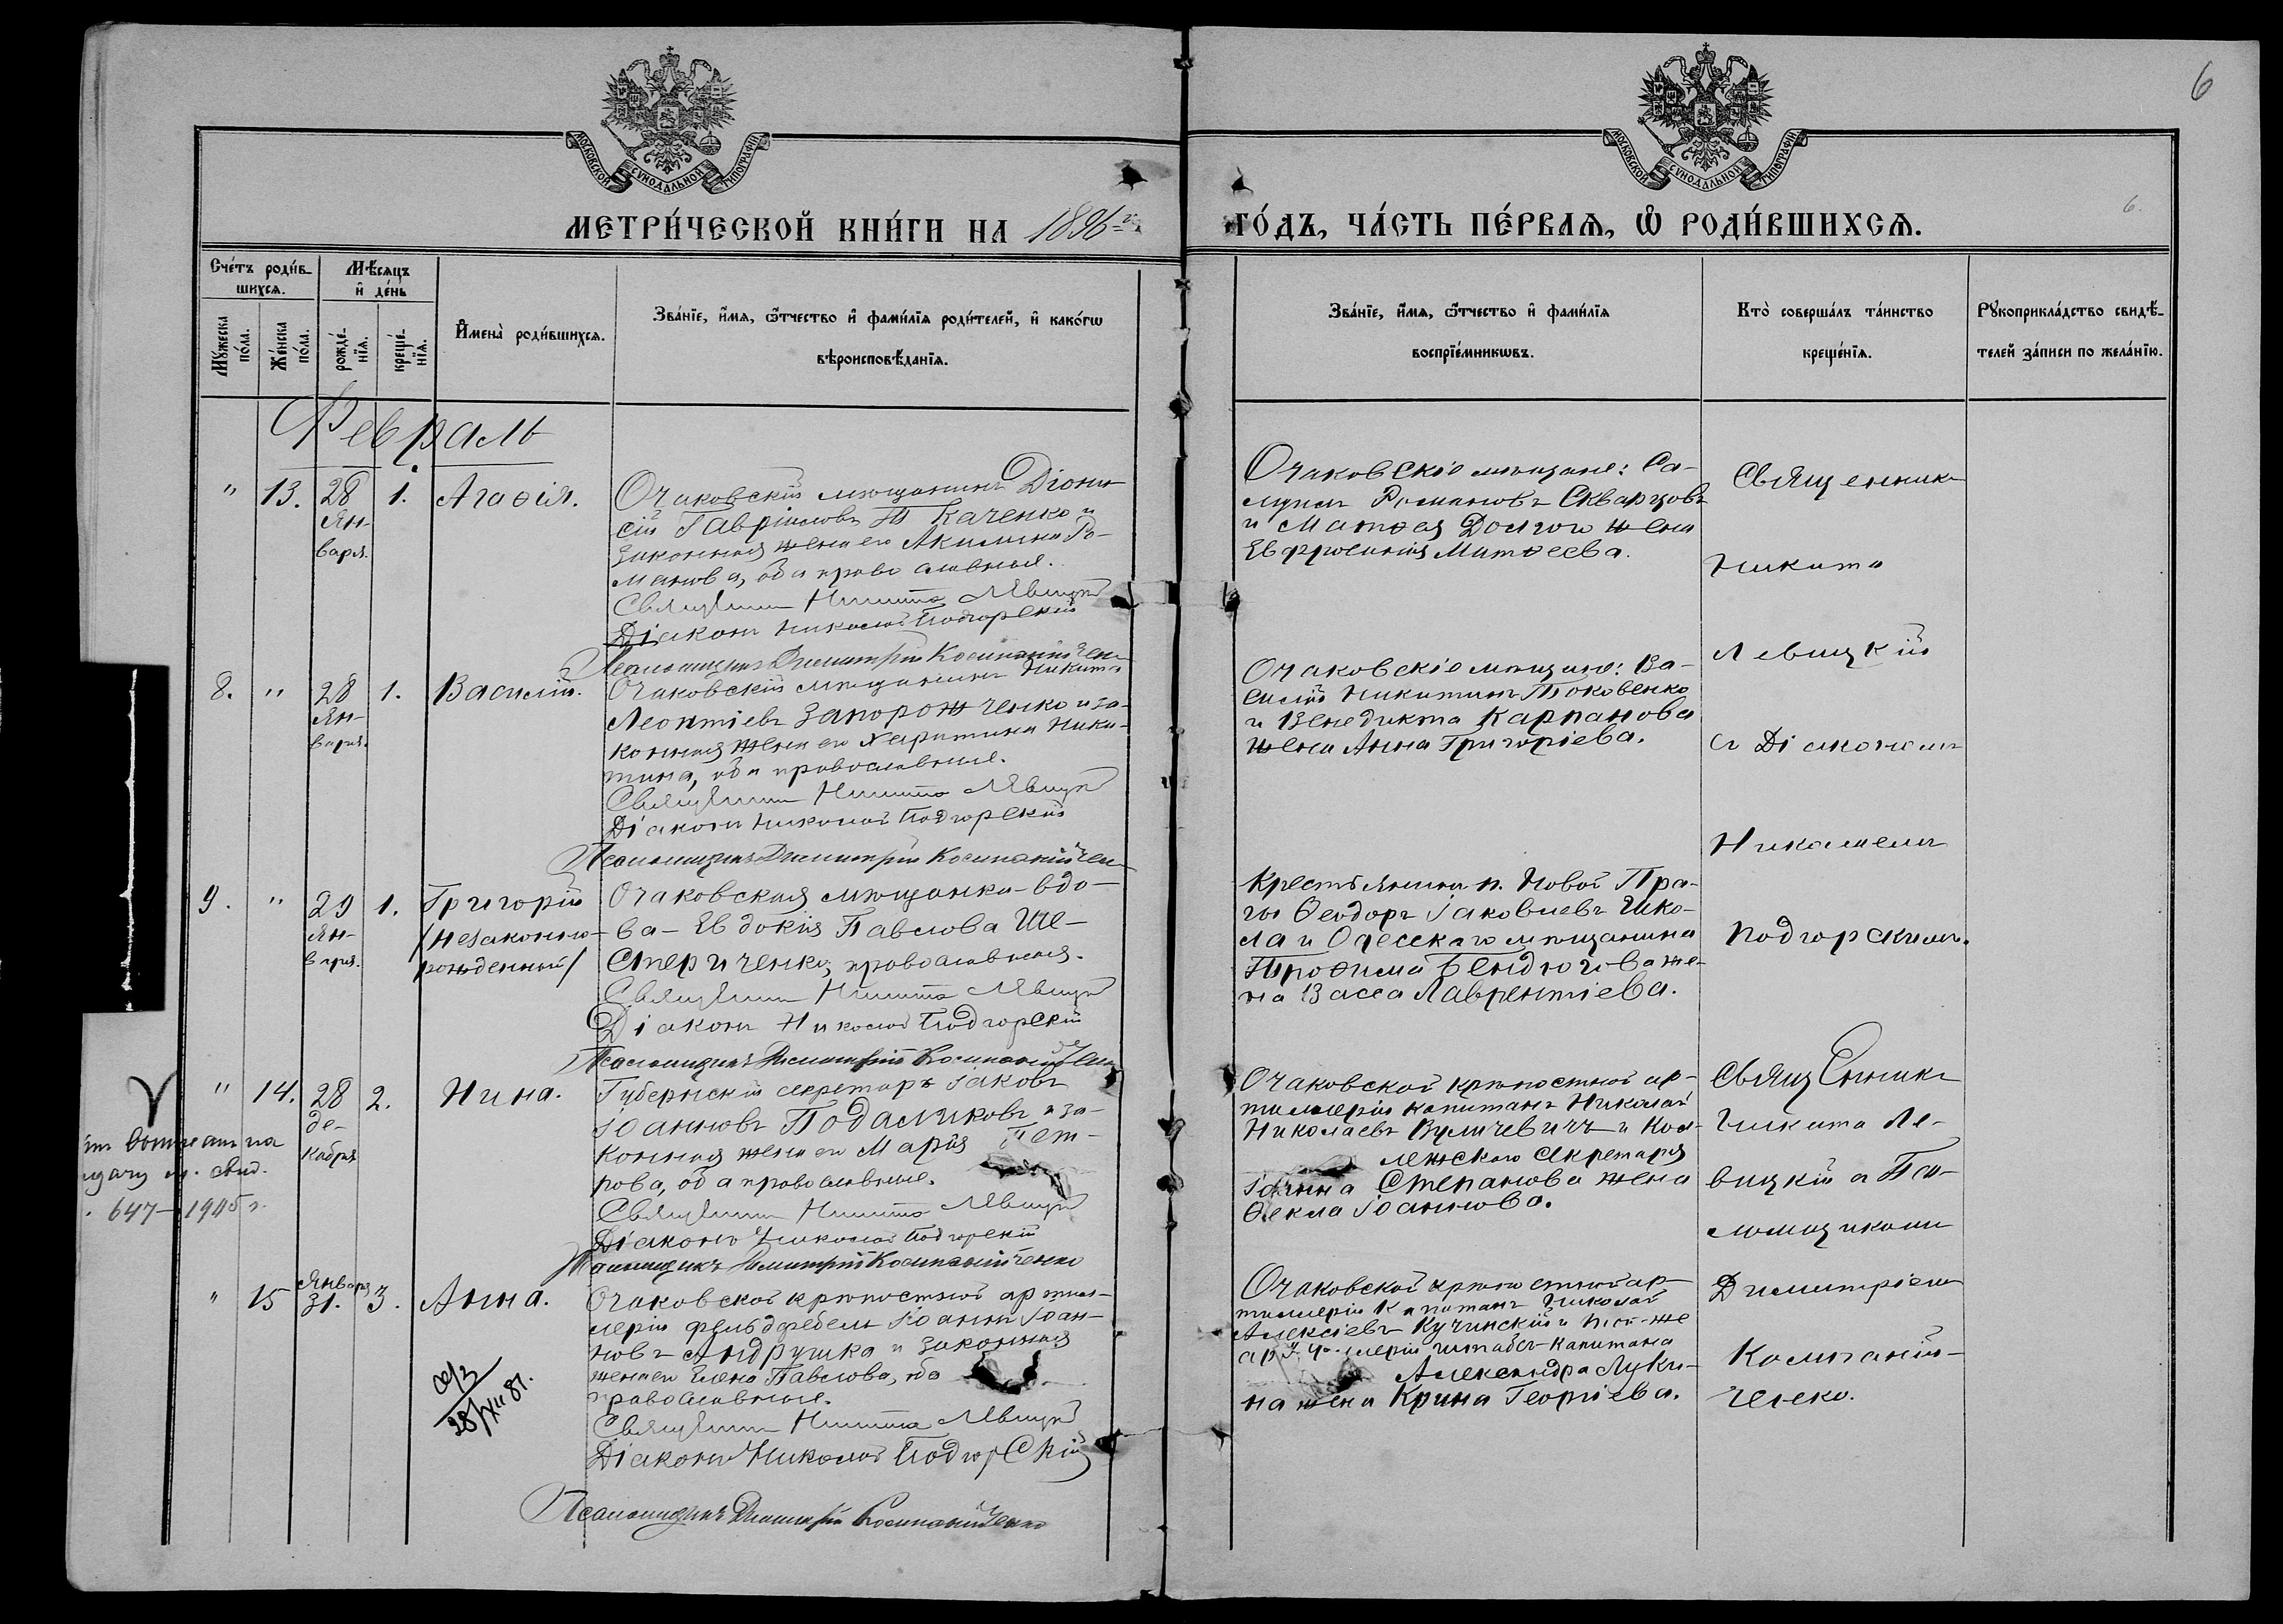 6
6.
МОСКОВСКОЙ СѴНОДАЛЬНОЙ ТИПОГРАФІИ
МОСКОВСКОЙ СѴНОДАЛЬНОЙ ТИПОГРАФІИ
МЕТРИ́ЧЕСКОЙ КНИ́ГИ НА 1896 г.
ГО́ДЪ, ЧА́СТЬ ПЕ́РВАѦ, Ѽ РОДИ́ВШИХСѦ.
Сче́тъ роди́в-
шихсѧ.
Мꙋ́жеска
по́ла.
Же́нска
по́ла.
Мѣ́сѧцъ
и҆ де́нь
рожде́-
нїѧ.
креще́-
нїѧ.
И҆мена̀ роди́вшихсѧ.
Зва́нїе, и҆́мѧ, ѻ҆́тчество и҆ фами́лїѧ роди́телей, и҆ како́гѡ
вѣроисповѣ́данїѧ.
Зва́нїе, и҆́мѧ, ѻ҆́тчество и҆ фами́лїѧ
воспрїе́мникѡвъ.
Кто̀ соверша́лъ та́инство
креще́нїѧ.
Рꙋкоприкла́дство свидѣ́-
телей за́писи по жела́нїю.
Февраль
" 13. 28 1. Агаѳія.
Ян-
варя.
Очаковскій мѣщанинъ Діони-
сій Гавріиловъ Ткаченко и
законная жена его Акилина Ро-
манова, оба православные.
Священникъ Никита Левицкій
Діаконъ Николай Подгорскій
Псаломщикъ Димитрій Компанійченко
Очаковскіе мѣщане: Са-
муилъ Романовъ Скварцовъ
и Матѳея Долгого жена
Евфросинія Матѳеева.
8. " 28 1. Василій.
Ян-
варя.
Очаковскій мѣщанинъ Никита
Леонтіевъ Запорожченко и за-
конная жена его Харитина Ники-
тина, оба православные.
Священникъ Никита Левицкій
Діаконъ Николай Подгорскій
Псаломщикъ Димитрій Компанійченко
Очаковскіе мѣщане: Ва-
силій Никитинъ Токовенко
и Венедикта Карпанова
жена Анна Григоріева.
9. " 29 1. Григорій
Ян-
варя.
/незаконно-
рожденный/
Очаковская мѣщанка-вдо-
ва - Евдокія Павлова Ше-
стериченко, православная.
Священникъ Никита Левицкій
Діаконъ Николай Подгорскій
Псаломщикъ Димитрій Компанійченко
Крестьянинъ п. Новой Пра-
ги Ѳеодоръ Іаковлевъ Шко-
ла и Одесскаго мѣщанина
Трофима Бендюгова же-
на Васса Лаврентіева.
Священникъ
Никита
Левицкій
съ Діакономъ
Николаемъ
Подгорскимъ.
" 14. 28 2. Нина.
де-
кабря
выдачу м. свид.
647 - 1905 г.
Губернскій секретарь Іаковъ
Іоанновъ Подаликовъ и за-
конная жена его Марія Пет-
рова, оба православные.
Священникъ Никита Левицкій
Діаконъ Николай Подгорскій
Псаломщикъ Димитрій Компанійченко
Очаковской крѣпостной ар-
тиллеріи капитанъ Николай
Николаевъ Вуличевичъ и Кол-
лежскаго Секретаря
Іоанна Степанова жена
Ѳекла Іоаннова.
Священникъ
Никита Ле-
вицкій съ Пса-
ломщикомъ
" 15 Января 31. 3. Анна.
28/XII 81.
Очаковской крѣпостной артил-
леріи фельдфебель Іоаннъ Іоан-
новъ Андрушко и законная
жена его Елена Павлова, оба
православные.
Священникъ Никита Левицкій
Діаконъ Николай Подгорскій
Псаломщикъ Димитрій Компанійченко
Очаковской крѣпостной ар-
тиллеріи Капитанъ Николай
Алексіевъ Кучинскій и той-же
артиллеріи штабсъ-капитана
Александра Луки-
на жена Ирина Георгіева.
Димитріемъ
Компаній-
ченко.